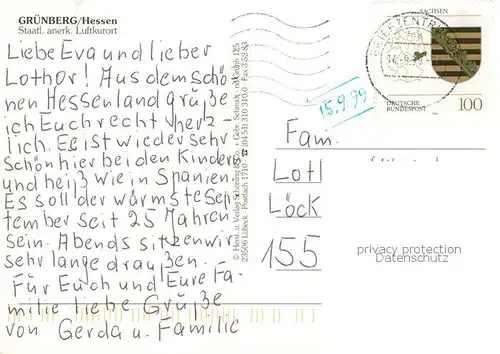 GRÜNBERG/Hessen
Staatl. anerk. Luftkurort
Liebe Eva und lieber
Lothar! Aus dem schö-
nen Hessenland grüße
ich Euch recht herz-
lich. Es ist wieder sehr
schön hier bei den Kindern
und heiß wie in Spanien.
Es soll der wärmste Sep-
tember seit 25 Jahren
sein. Abends sitzen wir
sehr lange draußen.
Für Euch und Eure Fa-
milie liebe Grüße
von Gerda u. Familie
© Herst. u. Verlag Schöning &
Gebr. Schmidt
23506 Lübeck · Postfach 1710 · ☎ (04 51) 310 310,0 · Fax 3 52 83
SACHSEN
BRIEFZENTRUM
DEUTSCHE
BUNDESPOST
100
15.9.99
Fam.
Lotl
Löck
155
privacy protection
Datenschutz